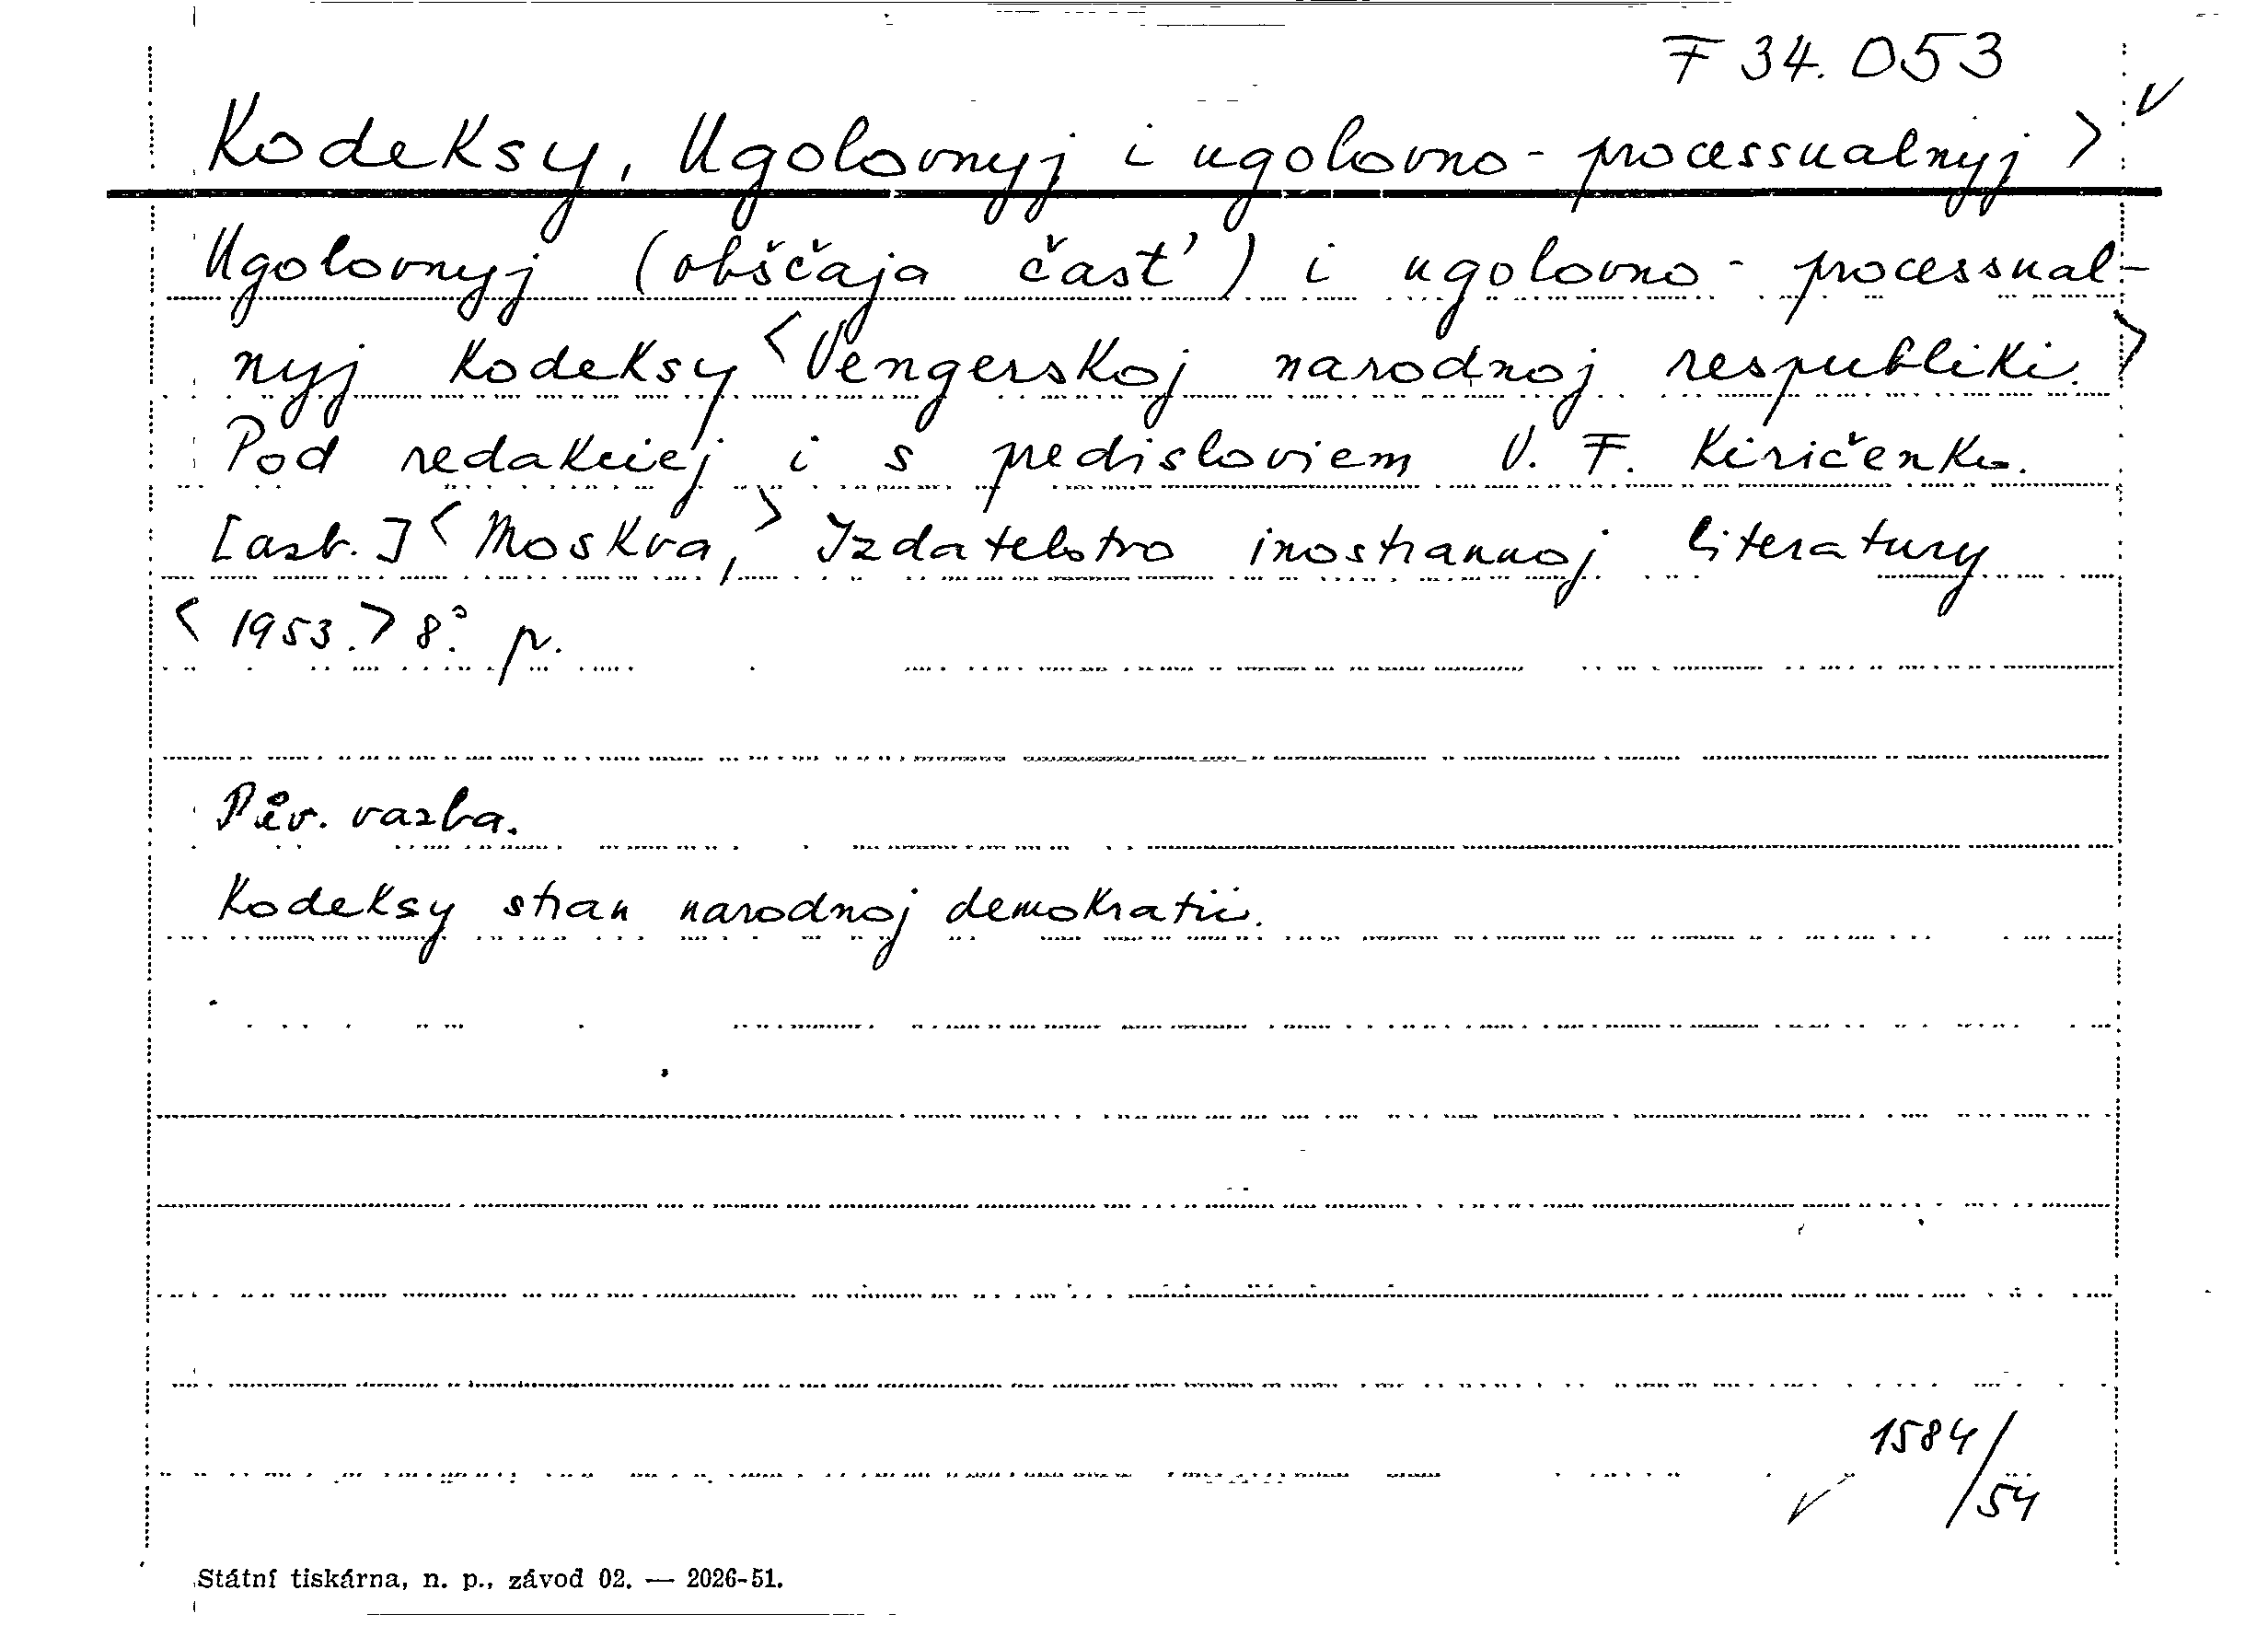 F 34.053
Kodeksy, Ugolovnyj i ugolovno-processualnyj > V
Ugolovnyj (obščaja časť) i ugolovno-processual-
nyj kodeksy <Vengerskoj narodnoj respubliki.>
Pod redakciej i s predisloviem V. F. Kiričenko.
[azb.] <Moskva,> Izdatelstvo inostrannoj literatury
<1953.> 8°. p.
Pův. vazba.
Kodeksy stran narodnoj demokratii.
1584/
V 54
Státní tiskárna, n. p., závod 02. — 2026-51.